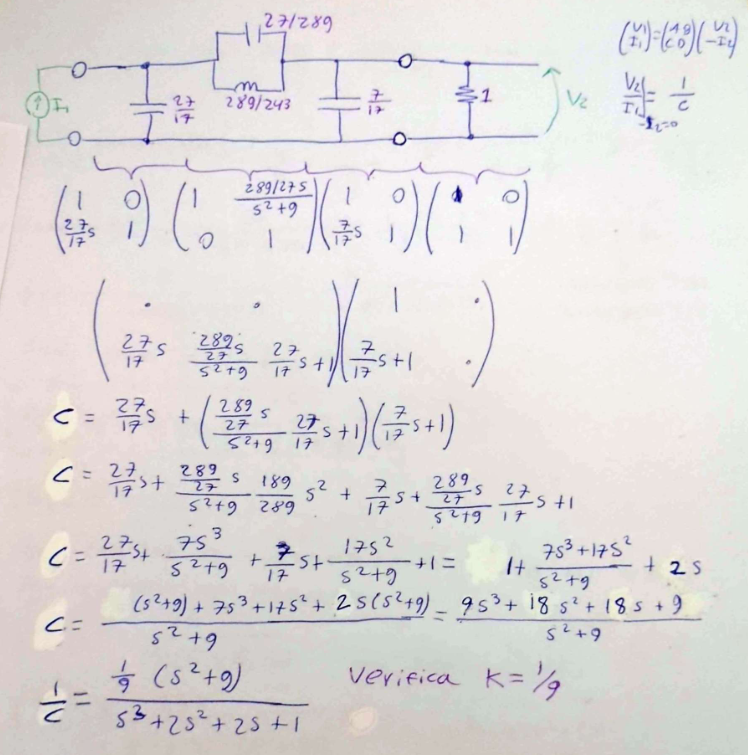 27/289
(V1 I1) = (A B C D) (V2 -I2)
I1 27/17 289/243 7/17 1 V2
V2/I1 |-I2=0 = 1/C
(1 0 27/17 s 1) (1 289/27 s / s²+9 0 1) (1 0 7/17 s 1) (1 0 1 1)
(. . 27/17 s 289/27 s / s²+9 27/17 s+1) (1 . 7/17 s+1 .)
C = 27/17 s + (289/27 s / s²+9 27/17 s+1) (7/17 s+1)
C = 27/17 s + 289/27 s / s²+9 189/289 s² + 7/17 s + 289/27 s / s²+9 27/17 s +1
C = 27/17 s + 7s³ / s²+9 + 7/17 s + 17s² / s²+9 +1 = 1+ 7s³+17s² / s²+9 + 2s
C = (s²+9) + 7s³+17s² + 2s(s²+9) / s²+9 = 9s³+ 18s²+18s+9 / s²+9
1/C = 1/9 (s²+9) / s³+2s²+2s+1 Verifica K=1/9